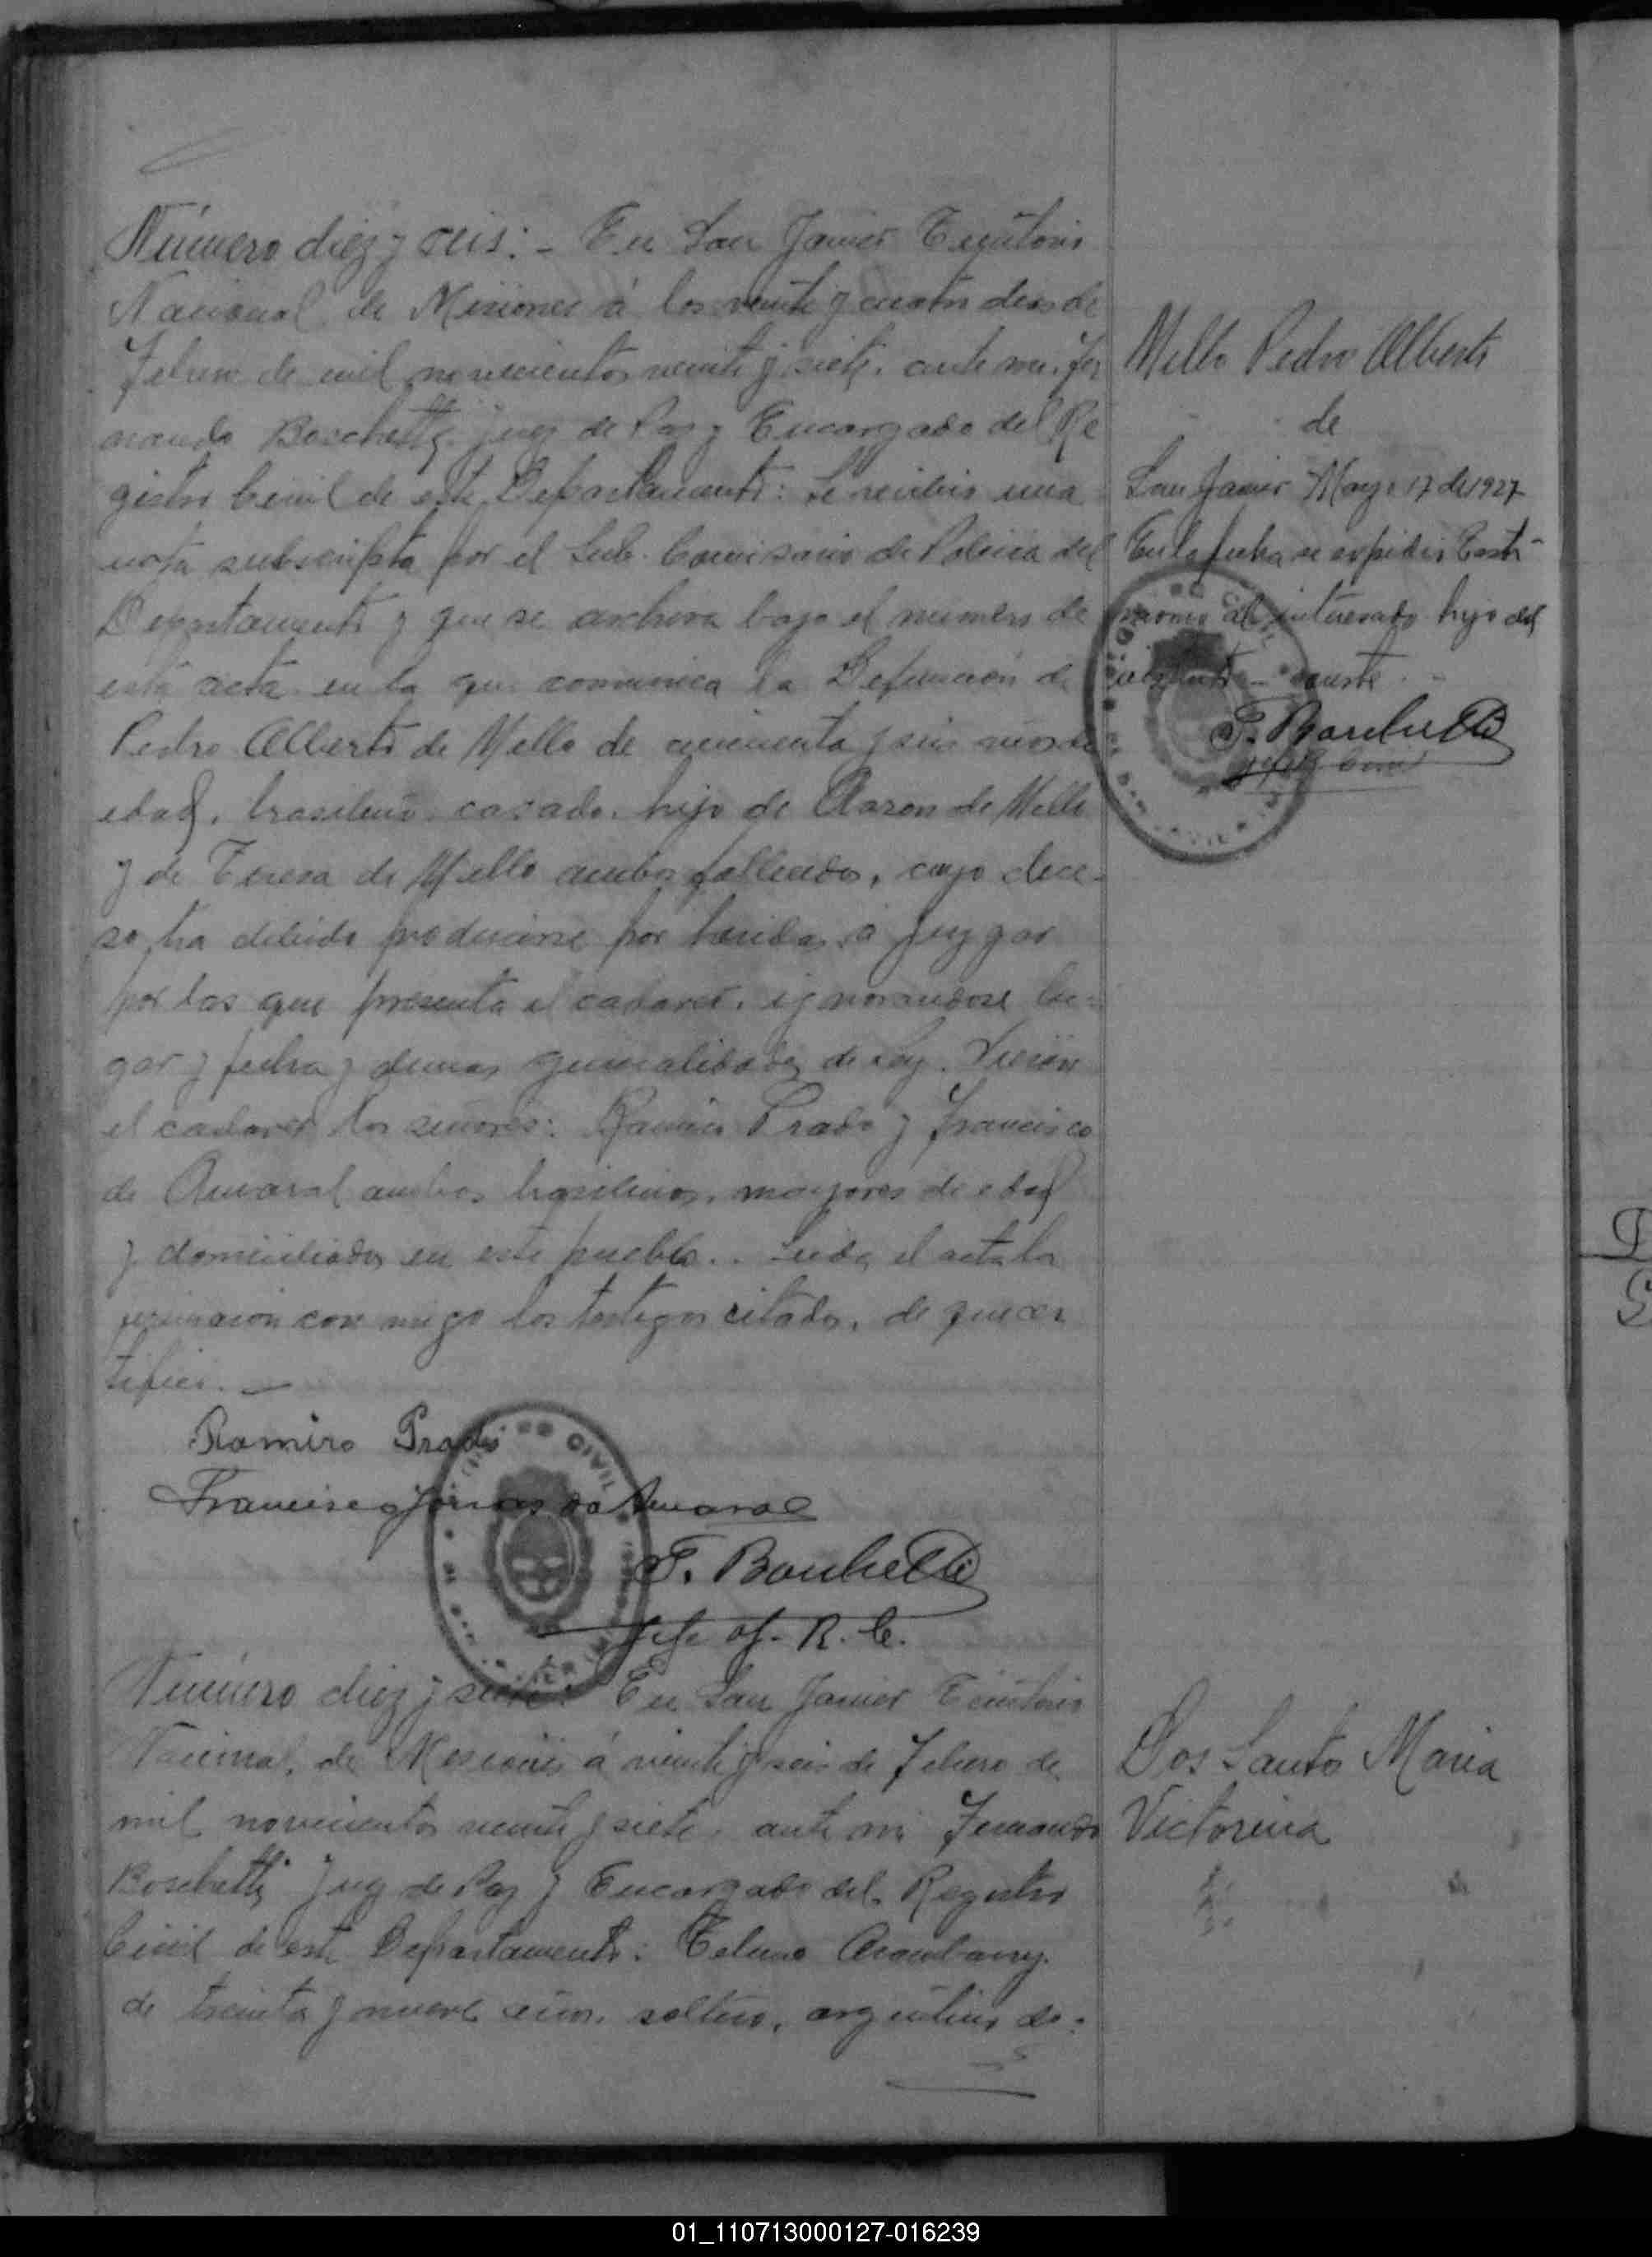 Número diez y seis: - En San Javier Territorio
Nacional de Misiones á los veinte y cuatro dias de
Febrero de mil novecientos veinte y siete, ante mi, Fer
nando Boschetti, Juez de Paz y Encargado del Re
gistro Civil de este Departamento: Se recibió una
nota subscripta por el Sub. Comisario de Policia del
Departamento y que se archiva bajo el numero de
esta acta en la que comunica la Defunción de
Pedro Alberto de Mello de cincuenta y seis años de
edad, brasilero, casado, hijo de Aaron de Mello
y de Teresa de Mello ambos fallecidos, cuyo dece-
so ha debido producirse por heridas á juzgar
por las que presenta el cadaver, ignorandose lu-
gar y fecha y demas generalidades de Ley. Vieron
el cadaver los señores: Ramiro Prado y Francisco
de Amaral ambos brasileros, mayores de edad
y domiciliados en este pueblo.. Leida el acta la
firmaron con migo los testigos citados, de que cer
tifico. -
Ramiro Prado
Francisco da Amaral
F. Boschetti
Jefe of. R. C.
Mello Pedro Alberto
de
San Javier Mayo 17 de 1927
En la fecha se expidió Testi-
monio al interesado hijo del
conste
F. Boschetti
CIVIL
Número diez y siete: En San Javier Territorio
Nacional, de Misiones á veinte y seis de Febrero de
mil novecientos veinte y siete, ante mi Fernando
Boschetti Juez de Paz y Encargado del Registro
Civil de este Departamento: Telmo
de treinta y nueve años, soltero, argentino do:
Dos Santo Maria
Victorina
01_110713000127-016239